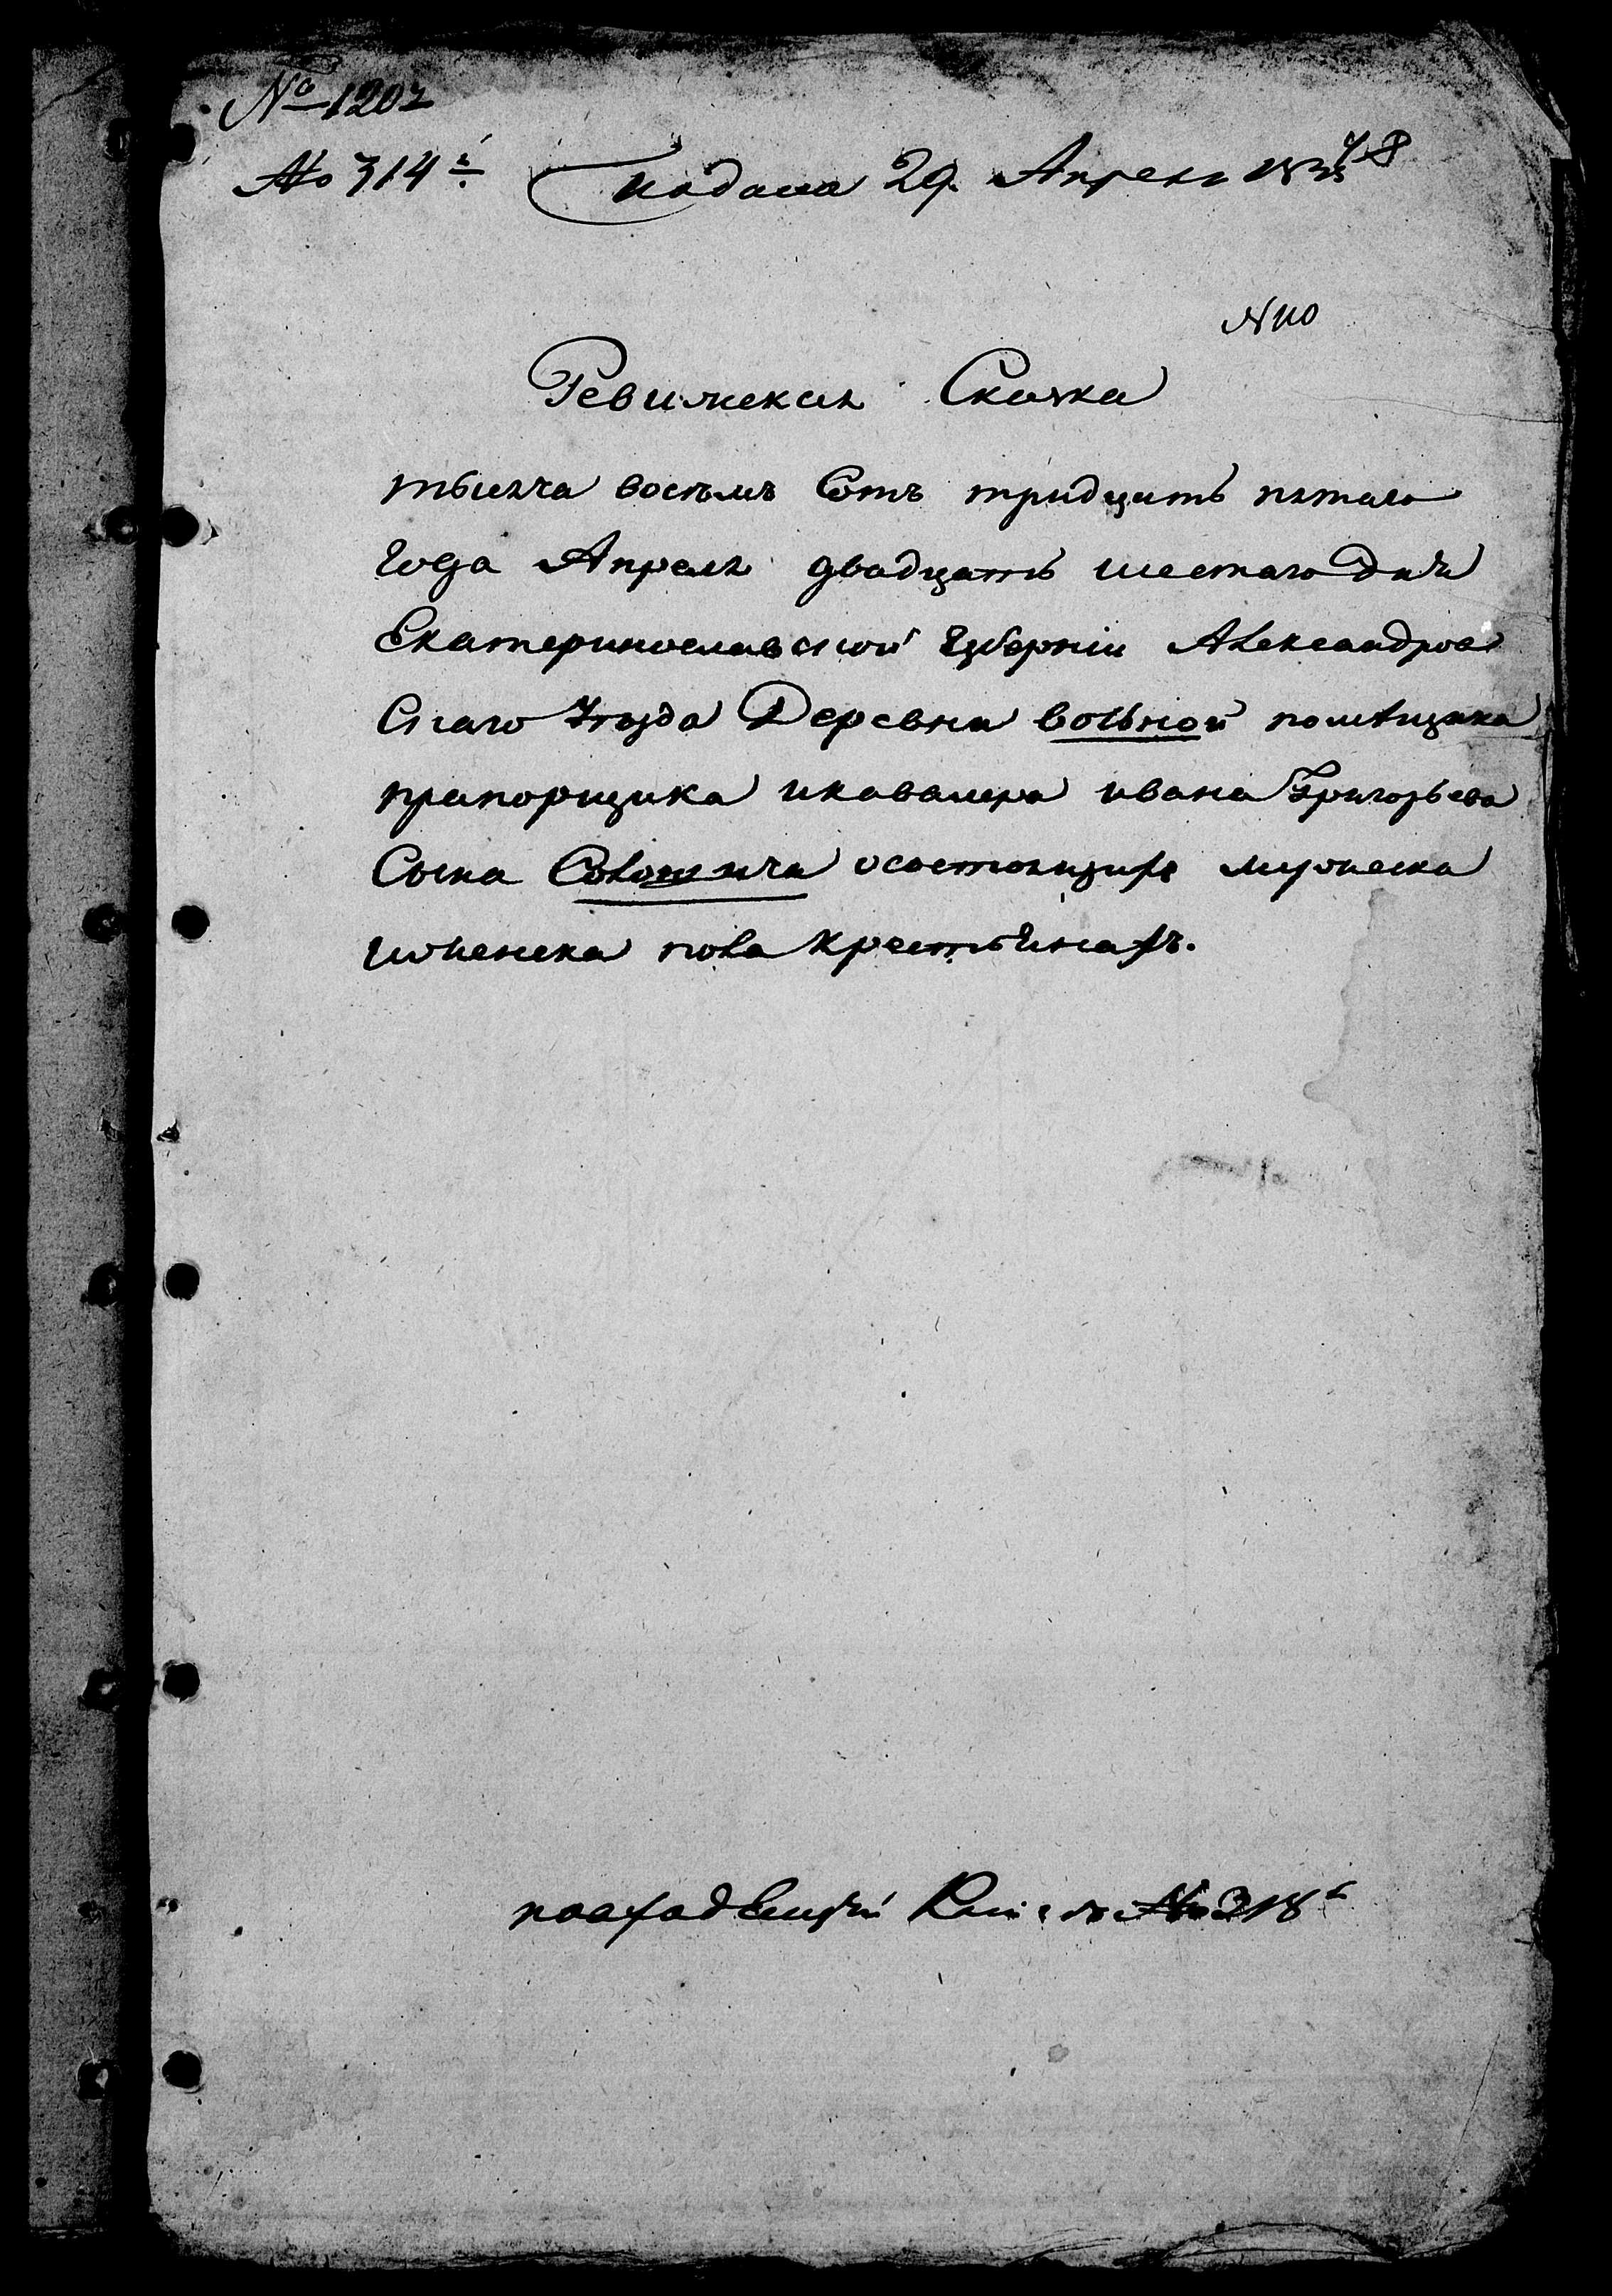 № 1202
№ 314
подана 29. Апреля 1835
N 110
Ревижская Скаска
тысяча восемъ Сотъ тридцать пятаго
года Апреля двадцать шестаго дня
Екатеринославской губерніи Александров
Скаго уѣзда Деревни вольной помѣщика
прапорщика икавалера ивана Григорьева
Сына осостоящихъ мужеска
иженска пола крестьянахъ.
№ 318